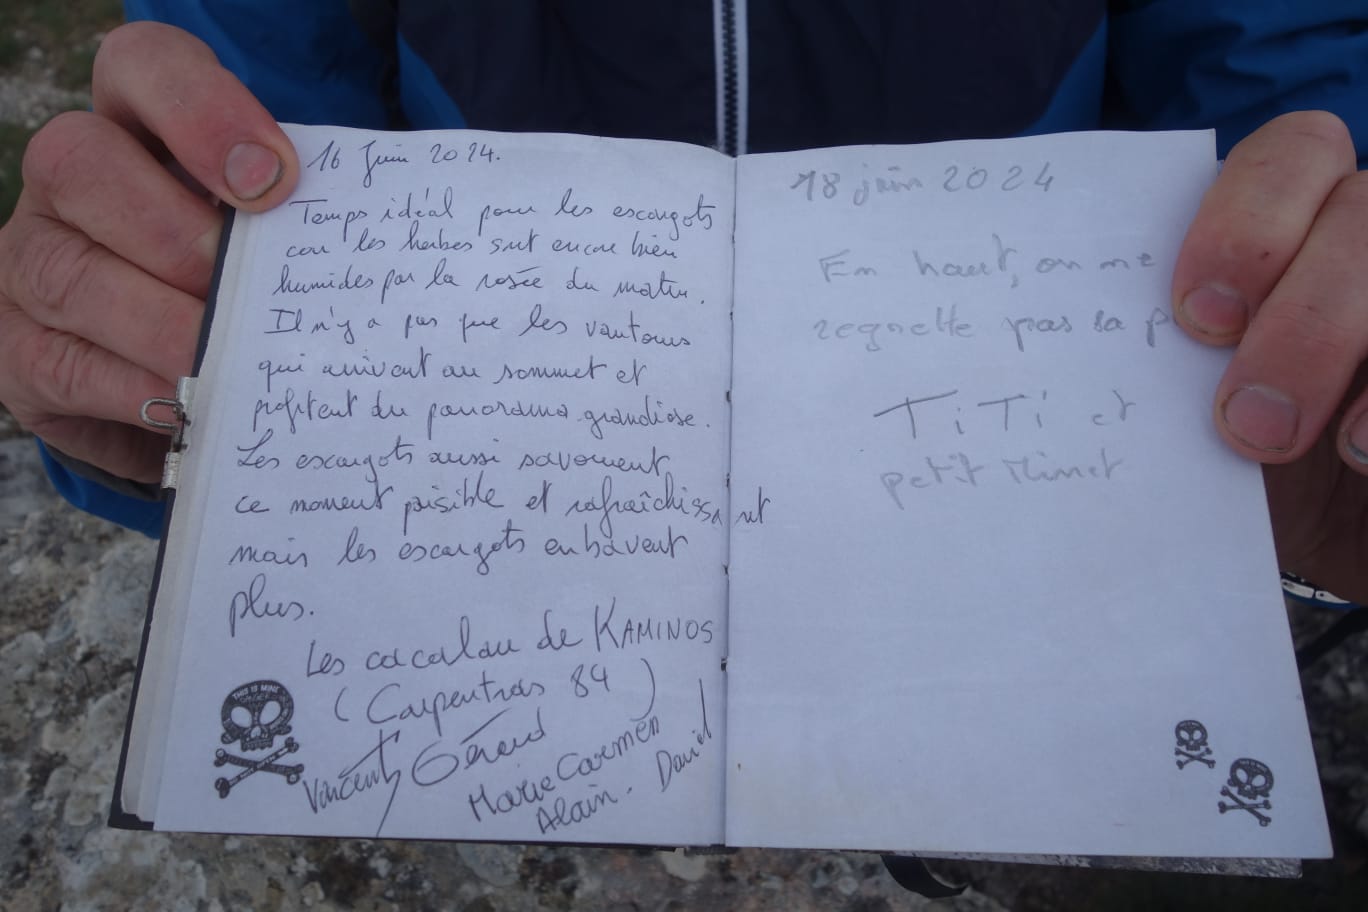 16 Juin 2024.
Temps idéal pour les escargots
car les herbes sont encore bien
humides par la rosée du matin.
Il n'y a pas que les vautours
qui arrivent au sommet et
profitent du panorama grandiose.
Les escargots aussi savourent
ce moment paisible et rafraîchissant
mais les escargots en bavent
plus.
Les cacalau de KAMINOS
(Carpentras 84)
Vincent Gérard
Marie Carmen
Alain. David
THIS IS MINE
18 juin 2024
En haut, on ne
regrette pas sa p
TiTi et
petit Minet